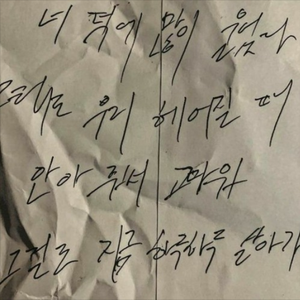 너 덕에 많이 울었다
그래도 우리 헤어질 때
안아 줘서 고마워
그걸로 지금 하루하루 살아가